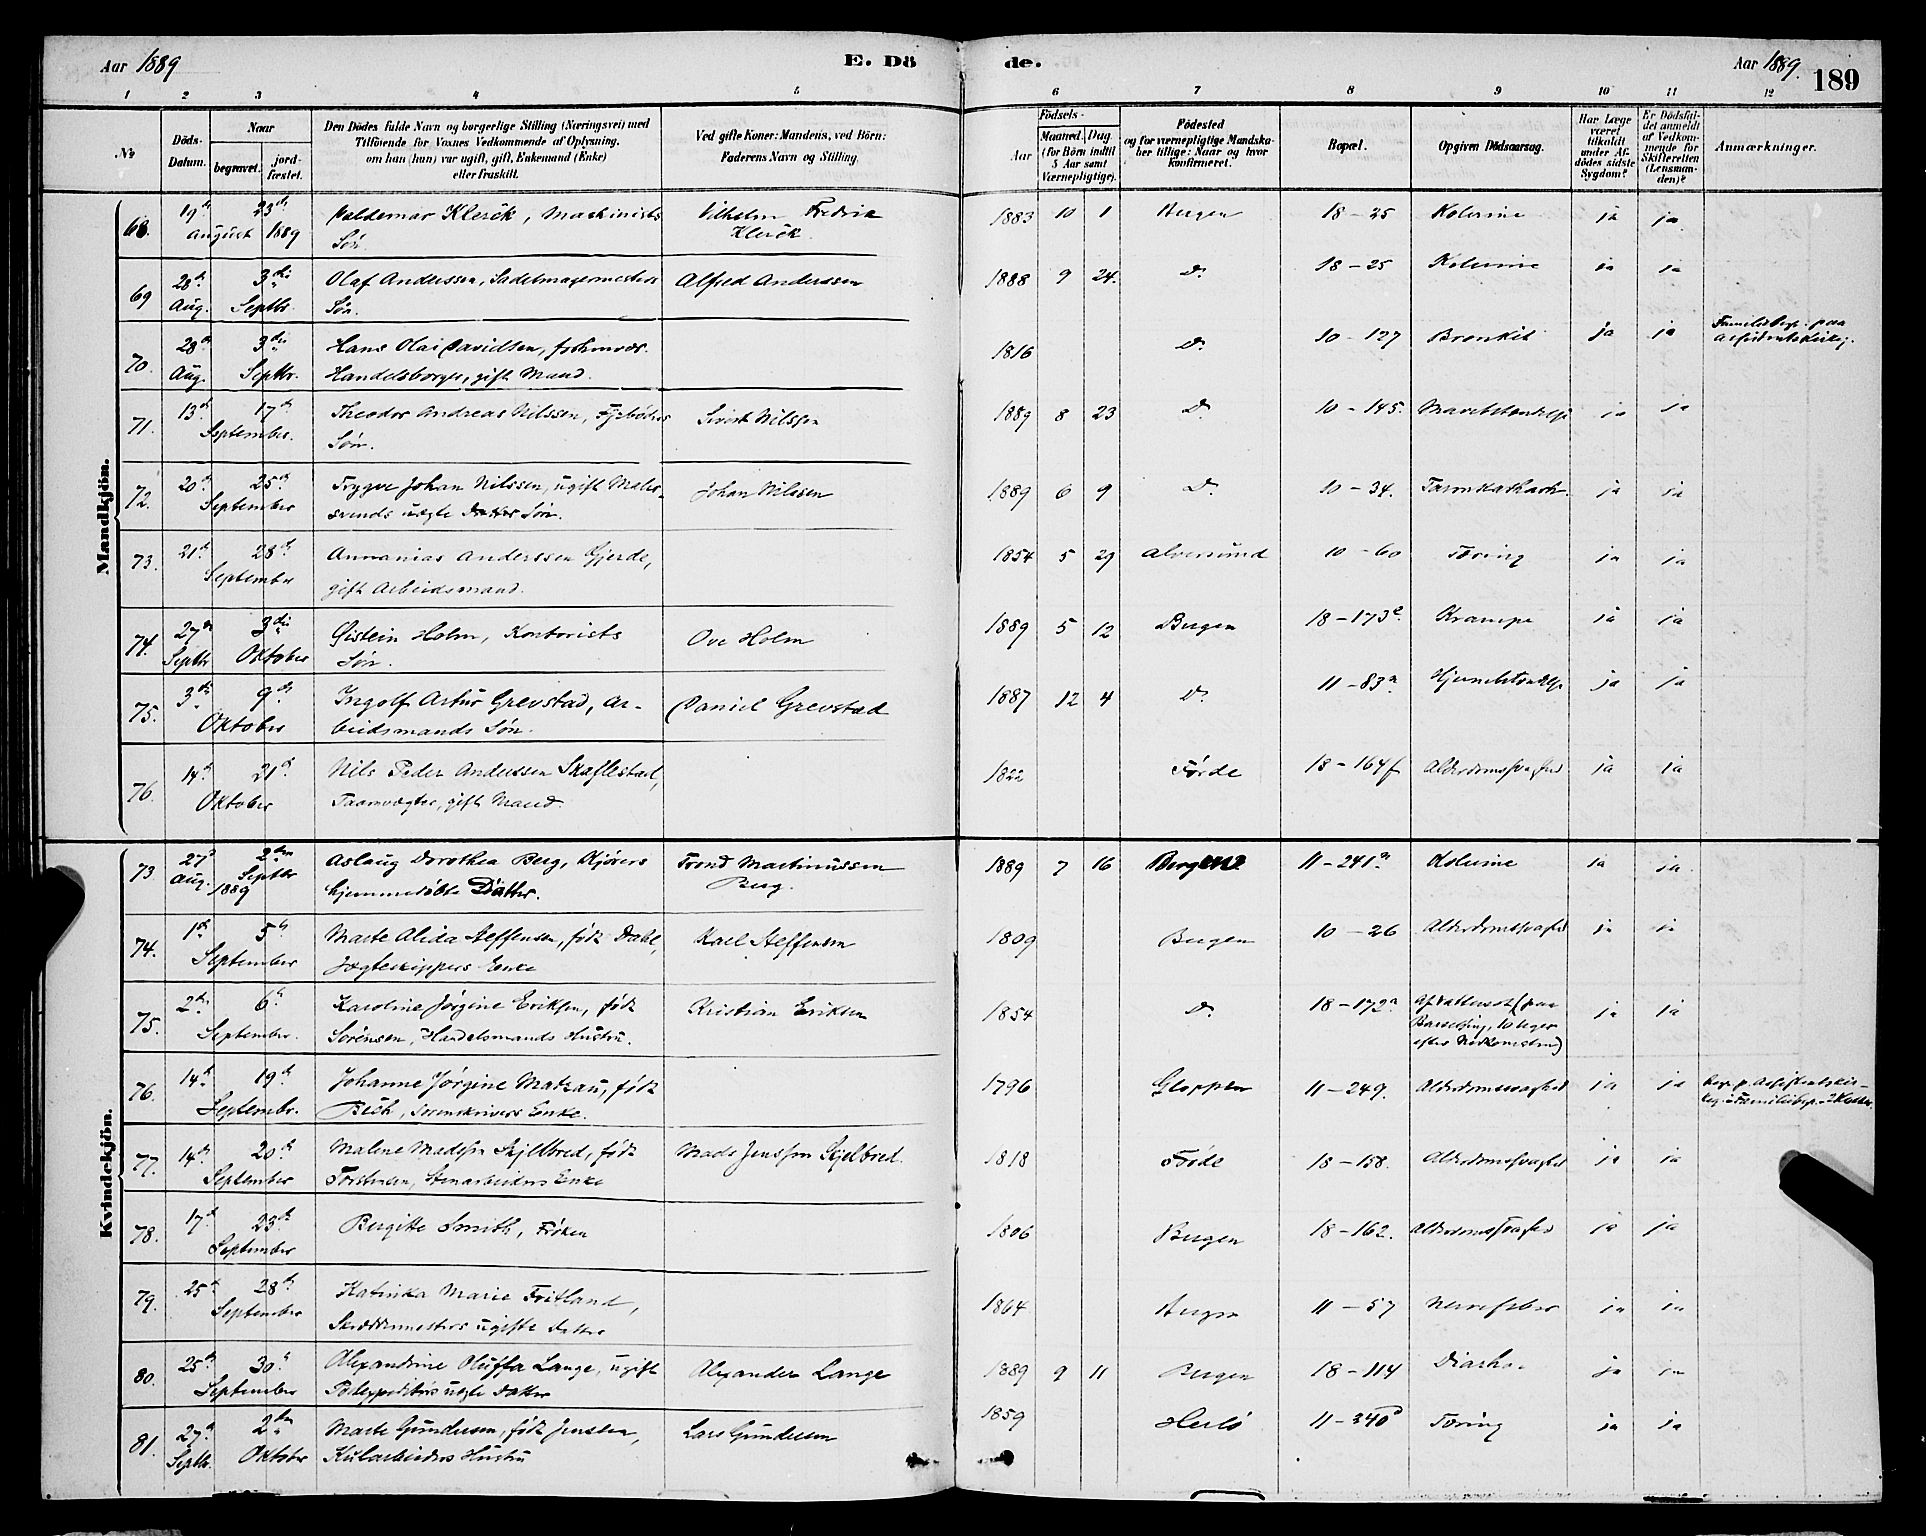 Aar 1889
E. Dö
de.
Aar 1889.
189
1 2 3 4 5 6 7 8 9 10 11 12
No
Döds-Datum.
Naar
begravet.
jord-fæstet.
Den Dödes fulde Navn og borgerlige Stilling (Næringsvei) med
Tilföiende for Voxnes Vedkommende af Oplysning,
om han (hun) var ugift, gift, Enkemand (Enke)
eller fraskilt.
Ved gifte Koner: Mandens, ved Börn:
Faderens Navn og Stilling.
Födsels-
Aar
Maaned.
Dag
(for Börn indtil
5 Aar samt
Værnepligtige).
Födested
og for værnepligtige Mandska-
ber tillige: Naar og hvor
konfirmeret.
Bopæl.
Opgiven Dödsaarsag.
Har Læge
været
tilkaldt
under Af-
dödes sidste
Sygdom?
Er Dödsfal-
det anmeldt
af Vedkom-
mende for
Skifteretten
(Lensman-
den)?
Anmærkninger.
Mandkjön.
68. 19de August 23de 1889 Valdemar Klerck, Maskinists Vilhelm Fredrik 1883 10 1 Bergen 18-25 Kolerine ja ja
Søn. Klerck.
69 28de Aug. 3die Septbr. Olaf Anderssen, Sadelmagermesters Alfred Anderssen 1888 9 24. Do 18-25 Kolerine ja ja
Søn.
70. 28de Aug. 3die Septbr. Hans Olai Davidsen, forhenvær. 1816 Do 10-127 Bronkit ja ja Familiebegr. paa
Handelsborger, gift Mand. Assistentskirkeg.
71. 13de 17de September. Theodor Andreas Nilssen, Sivert Nilssen 1889 8 23 Do 10-145. ja ja
Søn.
72. 20de 25de September Trygve Johan Nilssen, ugift Maler- Johan Nilssen 1889 6 9 Do 10-34. ja ja
svends uægte Søn.
73. 21de 28de September Annanias Anderssen Gjerde, 1854 5 29 Alversund 10-60 Tæring ja ja
gift Arbeidsmand.
74. 27de Septbr 3die Oktober Øistein Holm, Kontorists Ove Holm 1889 5 12 Bergen 18-173c Krampe ja ja
Søn.
75. 3die 9de Oktober Ingolf Artur Grevstad, Ar- Daniel Grevstad 1887 12 4 Do 11-83a ja ja
beidsmands Søn.
76. 14de 21de Oktober Nils Peder Anderssen Skaflestad, 1822 Førde 18-164f Alderdomssvaghed ja ja
Taarnvægter, gift Mand.
Kvindekjön.
73 27de Aug. 2den Septbr 1889 Aslaug Dorothea Berg, Kjørers Trond Martinussen 1889 7 16 Bergen 11-241a Kolerine ja ja
hjemmedøbte Datter. Berg.
74. 1ste 5te September Marte Alida Steffensen, født Dahl, Karl Steffensen 1809 Bergen 10-26 Alderdomssvaghed ja ja
Jægteskippers Enke
75. 2den 6te September. Karoline Jørgine Eriksen, født Kristian Eriksen 1854 Do 18-172a Afkræftelse (paa ja ja
Sørensen, Handelsmands Hustru. Barselseng, 10 Uger
efter Nedkomsten)
76. 14de 19de Septembr. Johanne Jørgine Matzau, født 1796 Gloppen 11-249. Alderdomssvaghed ja ja Begr. p. Assistentskir-
Bech, Sorenskrivers Enke. keg. i Familiebegr.
77. 14de 20de September Malene Madsen Skjelbred, født Mads Jenssen Skjelbred. 1818 Førde 18-158. Alderdomssvaghed ja ja
Torstensen, Stenarbeiders Enke
78. 17de 23de September Bergitte Smith, Frøken 1806 Bergen 18-162. Alderdomssvaghed ja ja
79. 25de 28de September Katinka Marie Fritland, 1864 Bergen 11-57 Nervefeber ja ja
Skræddermesters ugifte Datter
80. 25de 30te September Alexandrine Oluffa Lange, ugift Alexander Lange 1889 9 11 Bergen 18-114 ja ja
Postexpeditørs uægte Datter
81. 27de Septbr. 2den Oktober Marte Gundersen, født Jensen, Lars Gundersen 1859 Herlø 11-340d Tæring ja ja
Kularbeiders Hustru